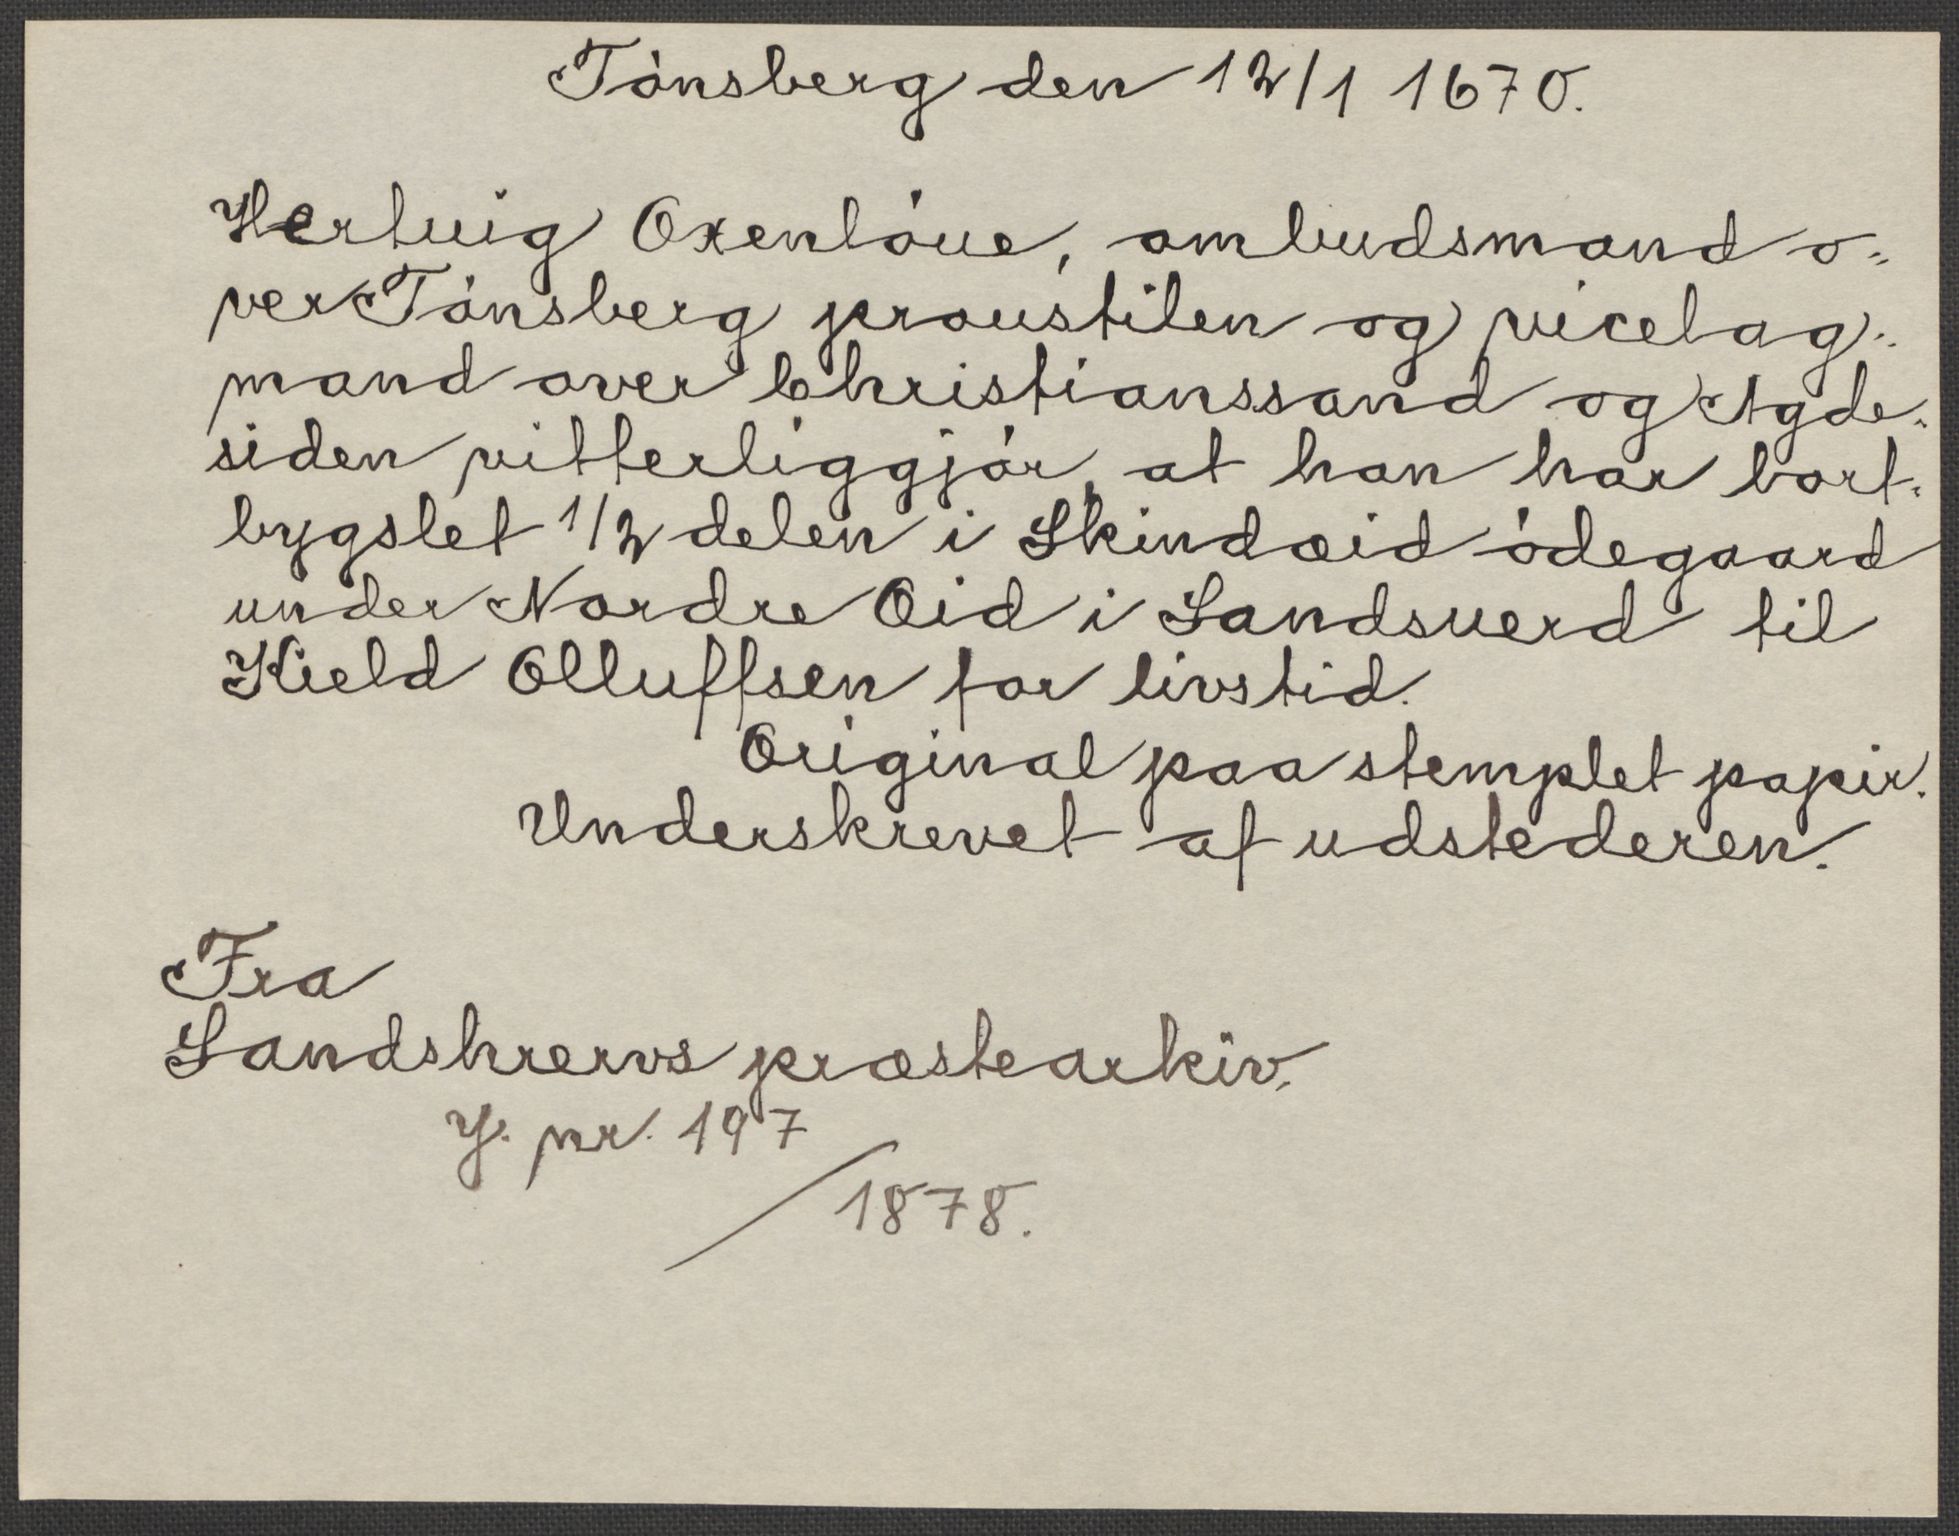 Tónsberg den 12/1 1670.
Hertuig Oxenlóue, ombudsmand o-
ver Tónsberg proustilen og vicelag-
mand over Christianssand og Agde-
siden vitterliggjór, at han har bort-
bygslet 1/2 delen i Skindæid ódegaard
under Nordre Oid i Landsuerd til
Kield Olluffsen for livstid.
Original paa stemplet papir.
Underskrevet af udstederen.
Fra
Sandshrervs præstearkiv.
J. nr. 197
/1878.